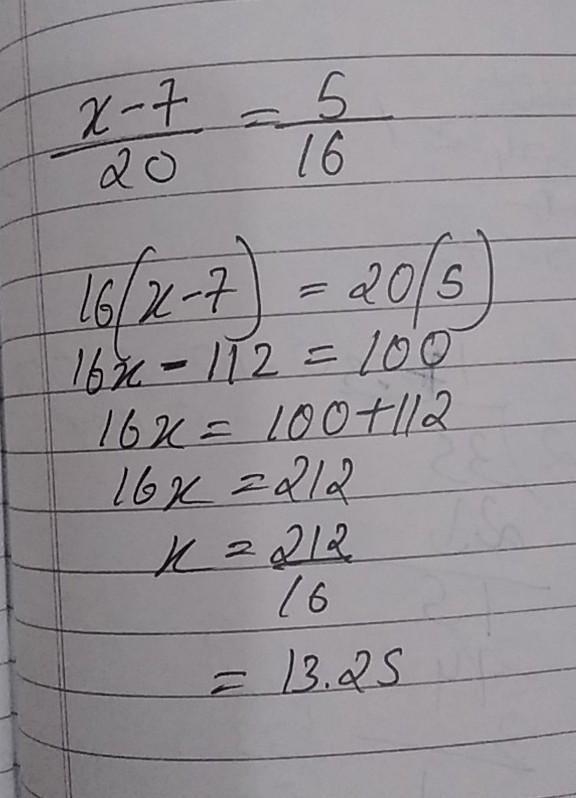 x-7/20 = 5/16
16(x-7) = 20(5)
16x - 112 = 100
16x = 100+112
16x = 212
x = 212/16
= 13.25